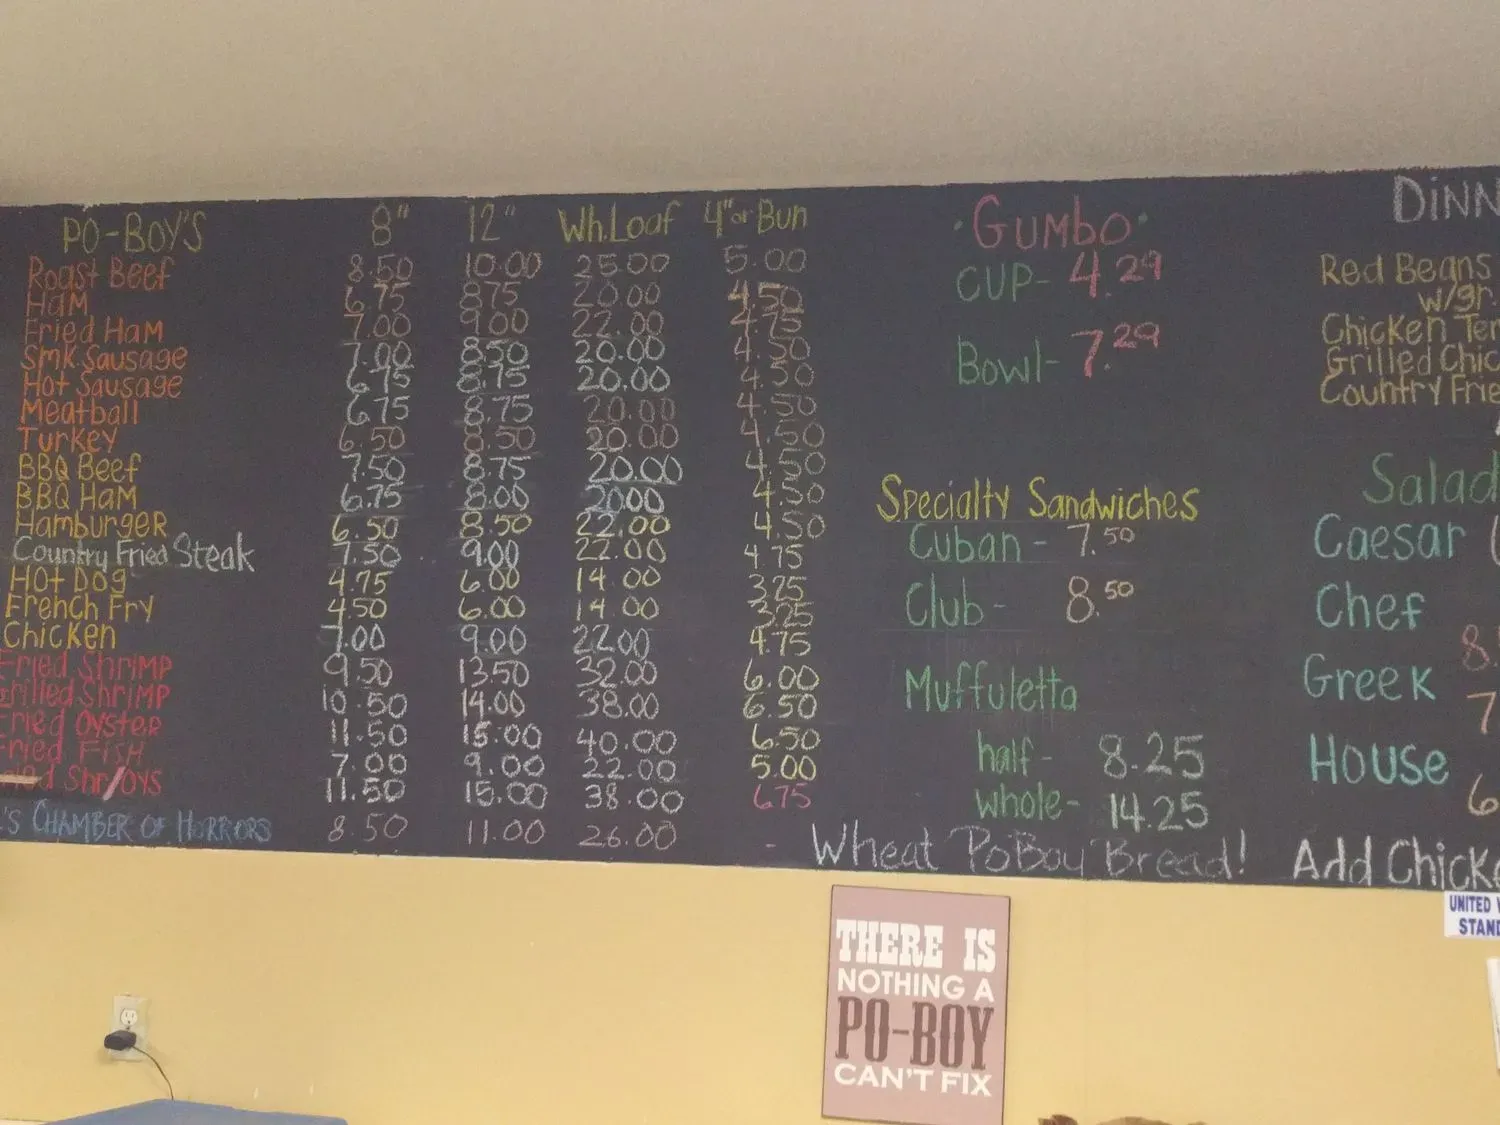 PO-BOY'S 8" 12" Wh.Loaf 4" or Bun
Roast Beef 8.50 10.00 25.00 5.00
Ham 6.75 8.75 20.00 4.50
Fried Ham 7.00 9.00 22.00 4.75
Smk.Sausage 7.00 8.50 20.00 4.50
Hot Sausage 6.75 8.75 20.00 4.50
Meatball 6.75 8.75 20.00 4.50
Turkey 6.50 8.50 20.00 4.50
BBQ Beef 7.50 8.75 20.00 4.50
BBQ Ham 6.75 8.00 20.00 4.50
Hamburger 6.50 8.50 22.00 4.50
Country Fried Steak 7.50 9.00 22.00 4.75
Hot Dog 4.75 6.00 14.00 3.25
French Fry 4.50 6.00 14.00 3.25
Chicken 7.00 9.00 22.00 4.75
Fried Shrimp 9.50 13.50 32.00 6.00
Grilled Shrimp 10.50 14.00 38.00 6.50
Fried Oyster 11.50 15.00 40.00 6.50
Fried Fish 7.00 9.00 22.00 5.00
Shr/oys 11.50 15.00 38.00 6.75
's Chamber of Horrors 8.50 11.00 26.00 -
·Gumbo·
CUP- 4.29
Bowl- 7.29
Specialty Sandwiches
Cuban - 7.50
Club - 8.50
Muffuletta
half - 8.25
whole- 14.25
Wheat PoBoy Bread!
DINN
Red Beans
w/gr.
Chicken Ten
Grilled Chic
Country Frie
Salad
Caesar (
Chef
8.
Greek
7
House
6
Add Chicke
THERE IS
NOTHING A
PO-BOY
CAN'T FIX
UNITED W
STAND